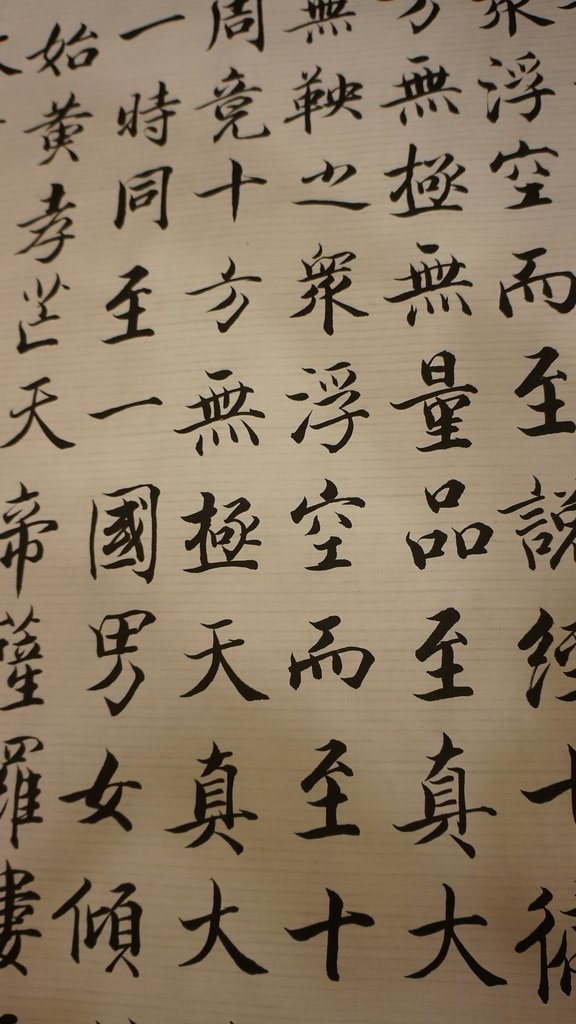 衆浮空而至説經十徧
方無極無量品至真大
無鞅之衆浮空而至十
周竟十方無極天真大
一時同至一國男女傾
始黃孝芒天帝薩羅婁